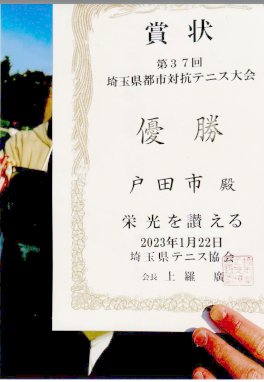 賞状
第37回
埼玉県都市対抗テニス大会
優勝
戸田市 殿
栄光を讃える
2023年1月22日
埼玉県テニス協会
会長 上羅 廣